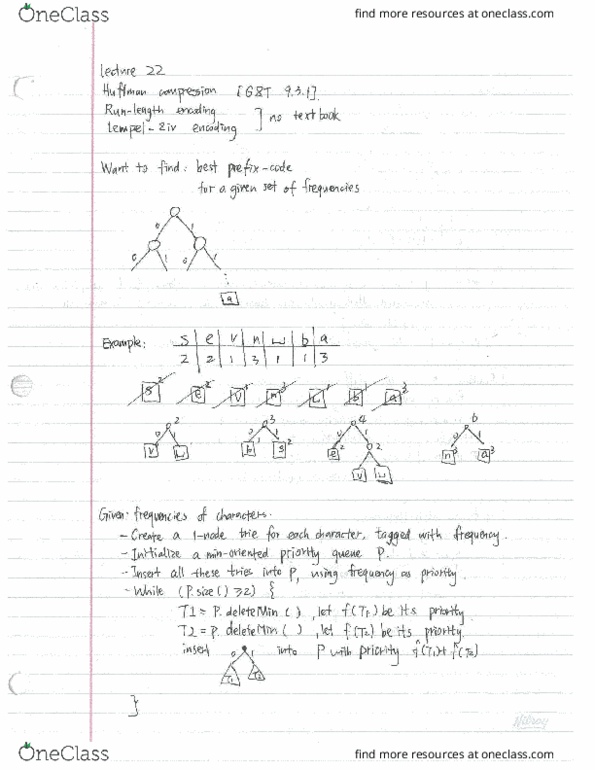 OneClass
find more resources at oneclass.com
lecture 22
Huffman compression [G&T 9.3.1]
Run-length encoding
lempel-Ziv encoding ] no textbook
Want to find: best prefix-code
for a given set of frequencies
0 1
0 1 0 1
a
Example: s e v n ␣ b a
2 2 1 3 1 1 3
s 2 e 2 v 1 n 3 ␣ 1 b 1 a 3
2 3 4 6
0 1 0 1 0 1 0 1
v ␣ b 1 s 2 e 2 2 n 3 a 3
v ␣
Given: frequencies of characters.
- Create a 1-node trie for each character, tagged with frequency.
- Initialize a min-oriented priority queue P.
- Insert all these tries into P, using frequency as priority.
- While (P.size() ≥2) {
T1 = P.deleteMin(), let f(T1) be its priority
T2 = P.deleteMin(), let f(T2) be its priority.
insert 0 1 into P with priority f(T1)+f(T2)
T1 T2
}
Hilroy
OneClass
find more resources at oneclass.com